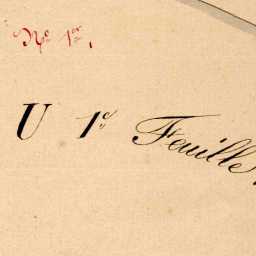 No 1er.
U 1e Feuille